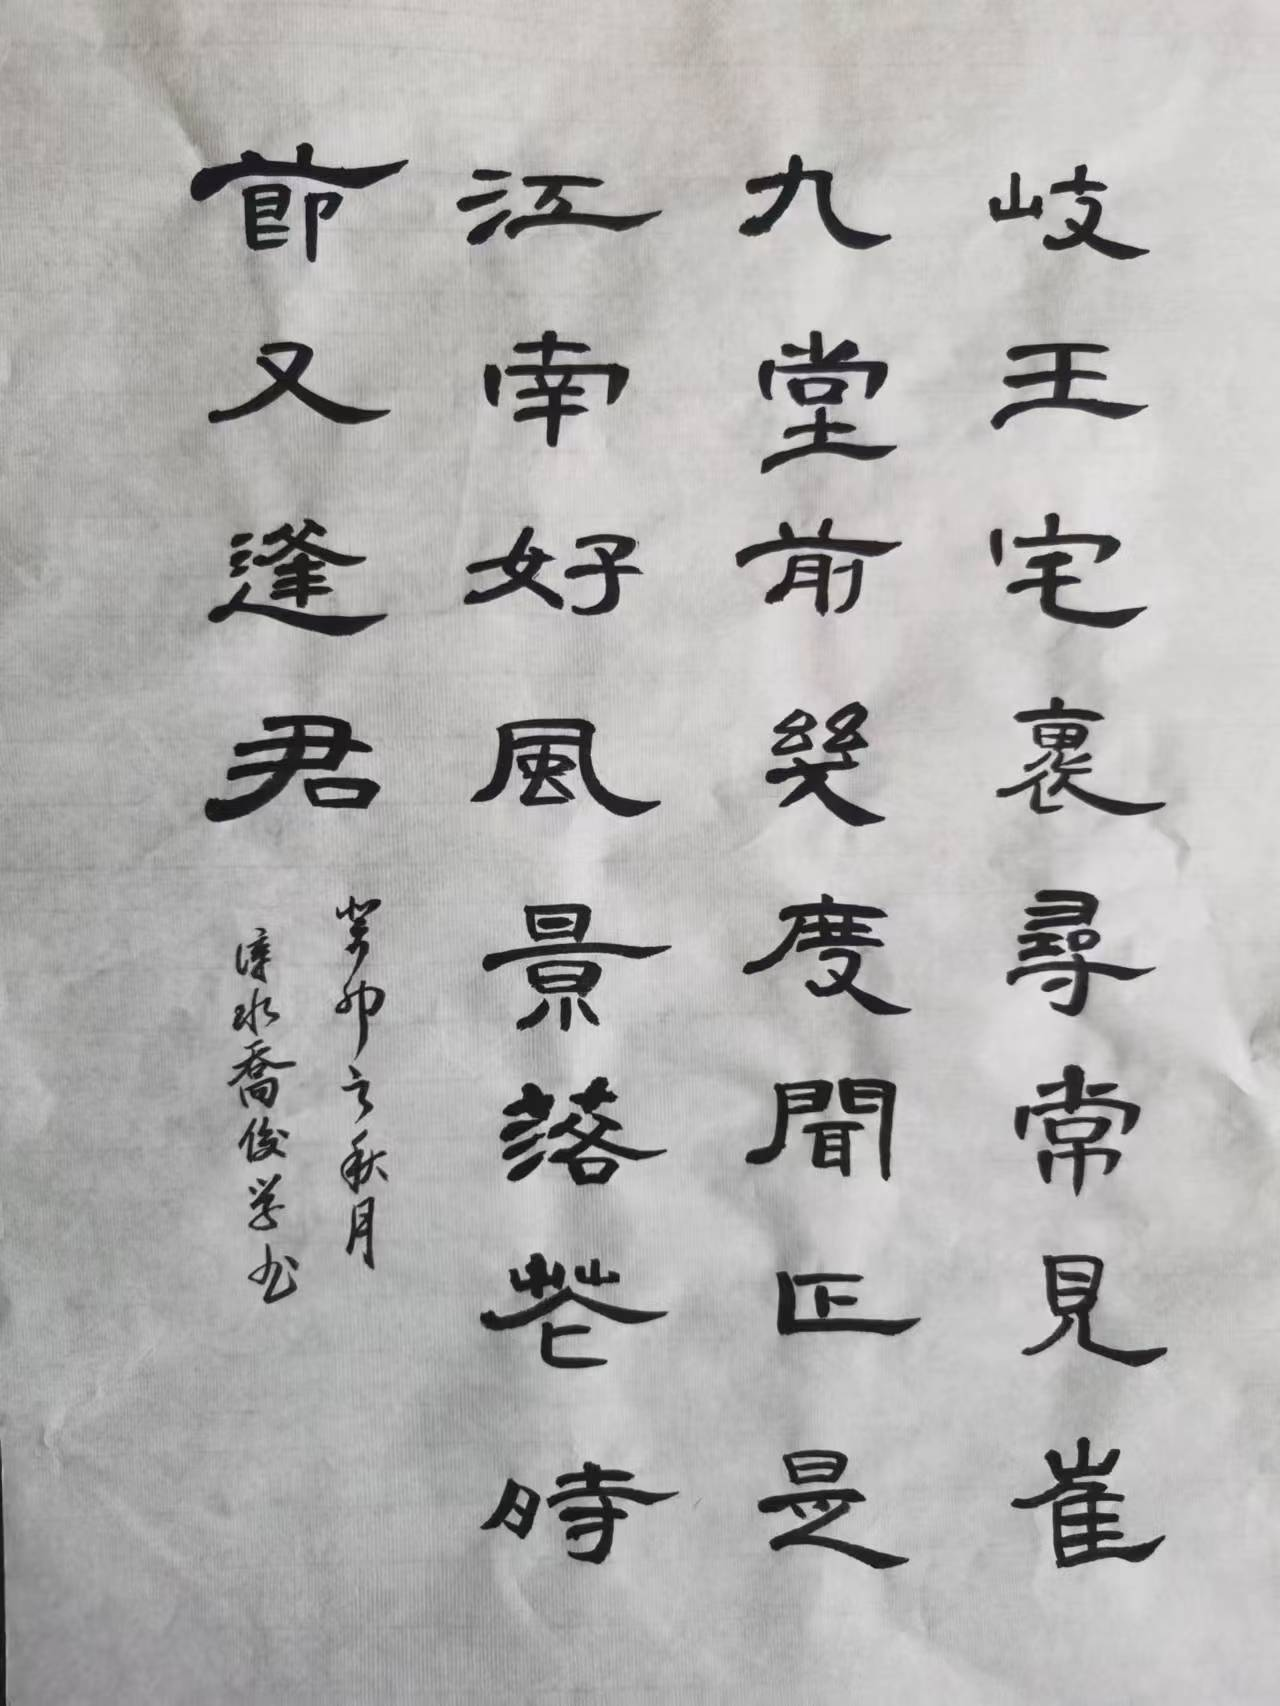 岐王宅裏尋常見崔
九堂前㡬度聞正是
江南好風景落花時
節又逢君
癸卯之秋月
漳水喬俊学书